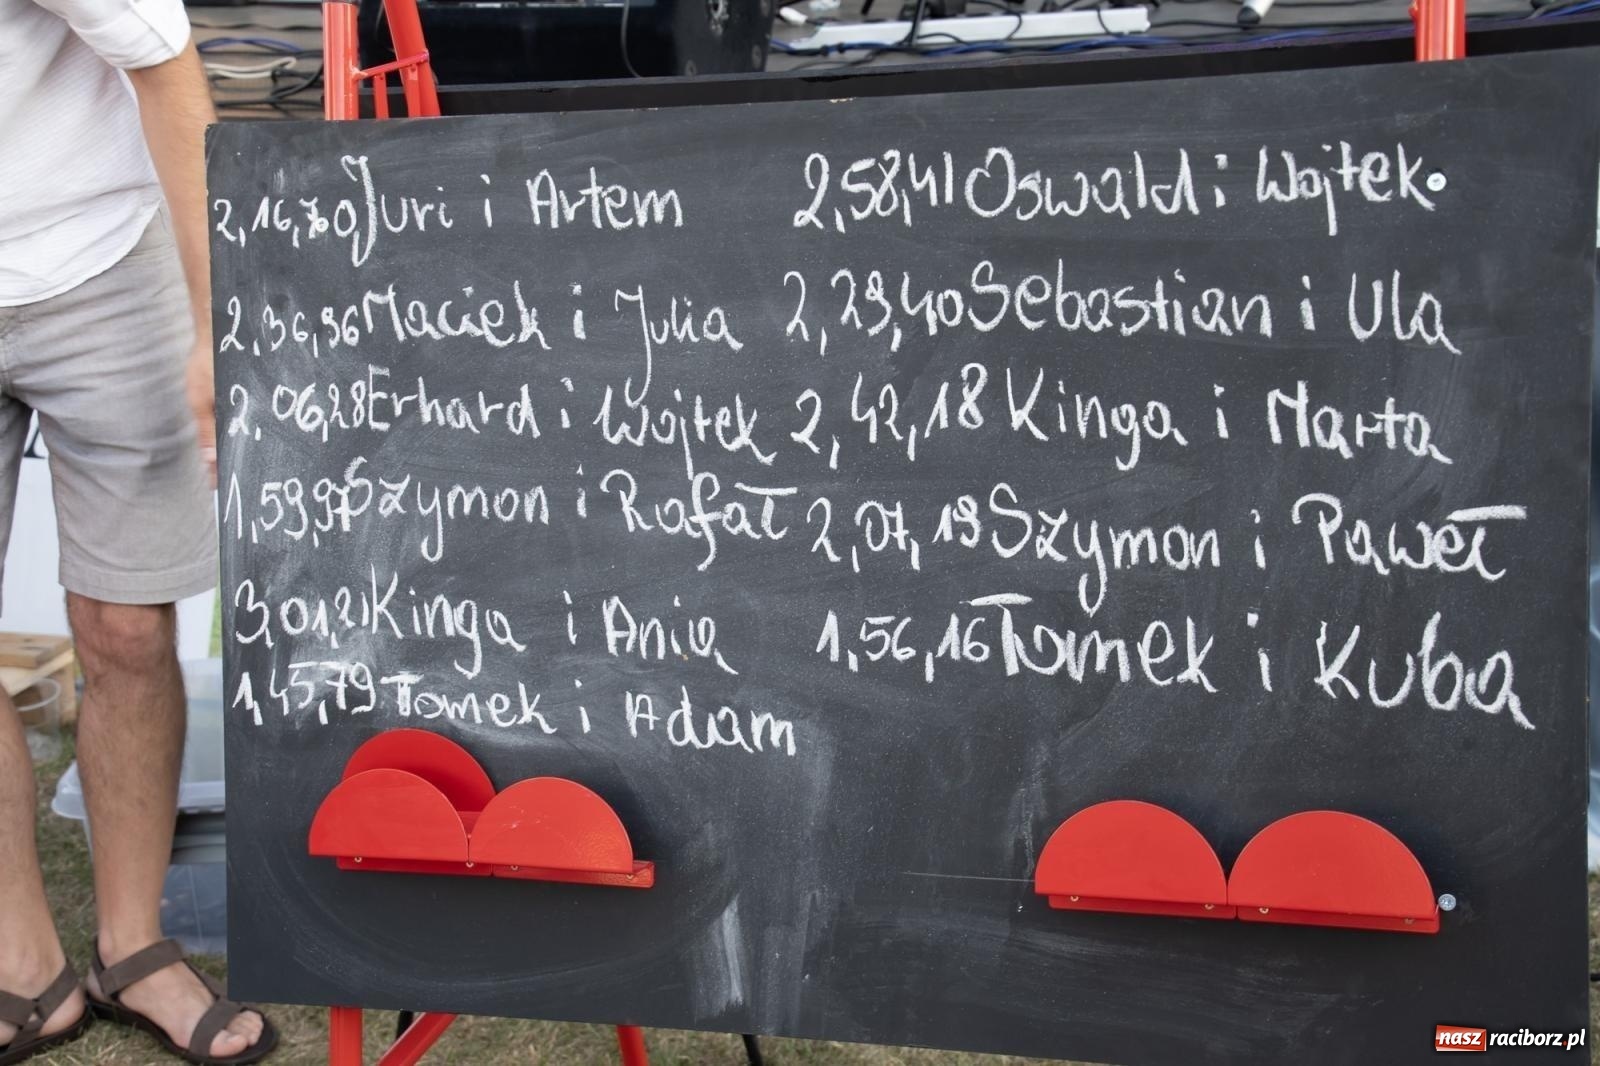 2,16,70 Juri i Artem
2,36,96 Maciek i Julia
2,06,28 Erhard i Wojtek
1,59,97 Szymon i Rafał
3,01,21 Kinga i Ania
1,45,79 Tomek i Adam
2,58,41 Oswald i Wojtek
2,29,40 Sebastian i Ula
2,42,18 Kinga i Marta
2,07,19 Szymon i Paweł
1,56,16 Tomek i Kuba
nasz raciborz.pl